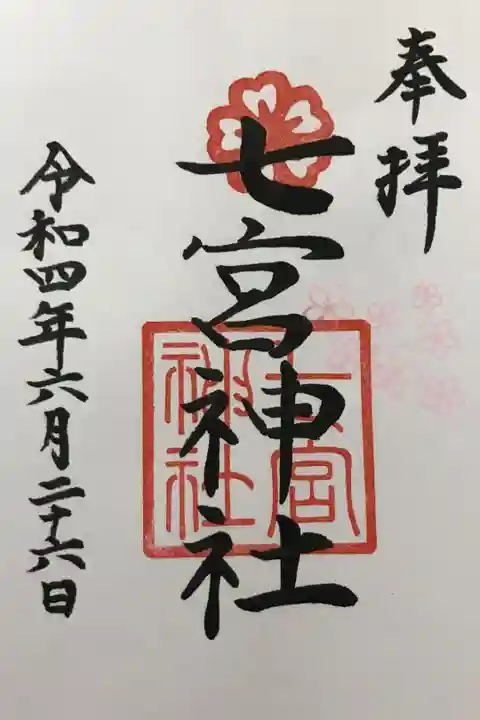 奉拝
七宮神社
七宮
神社
令和四年六月二十六日